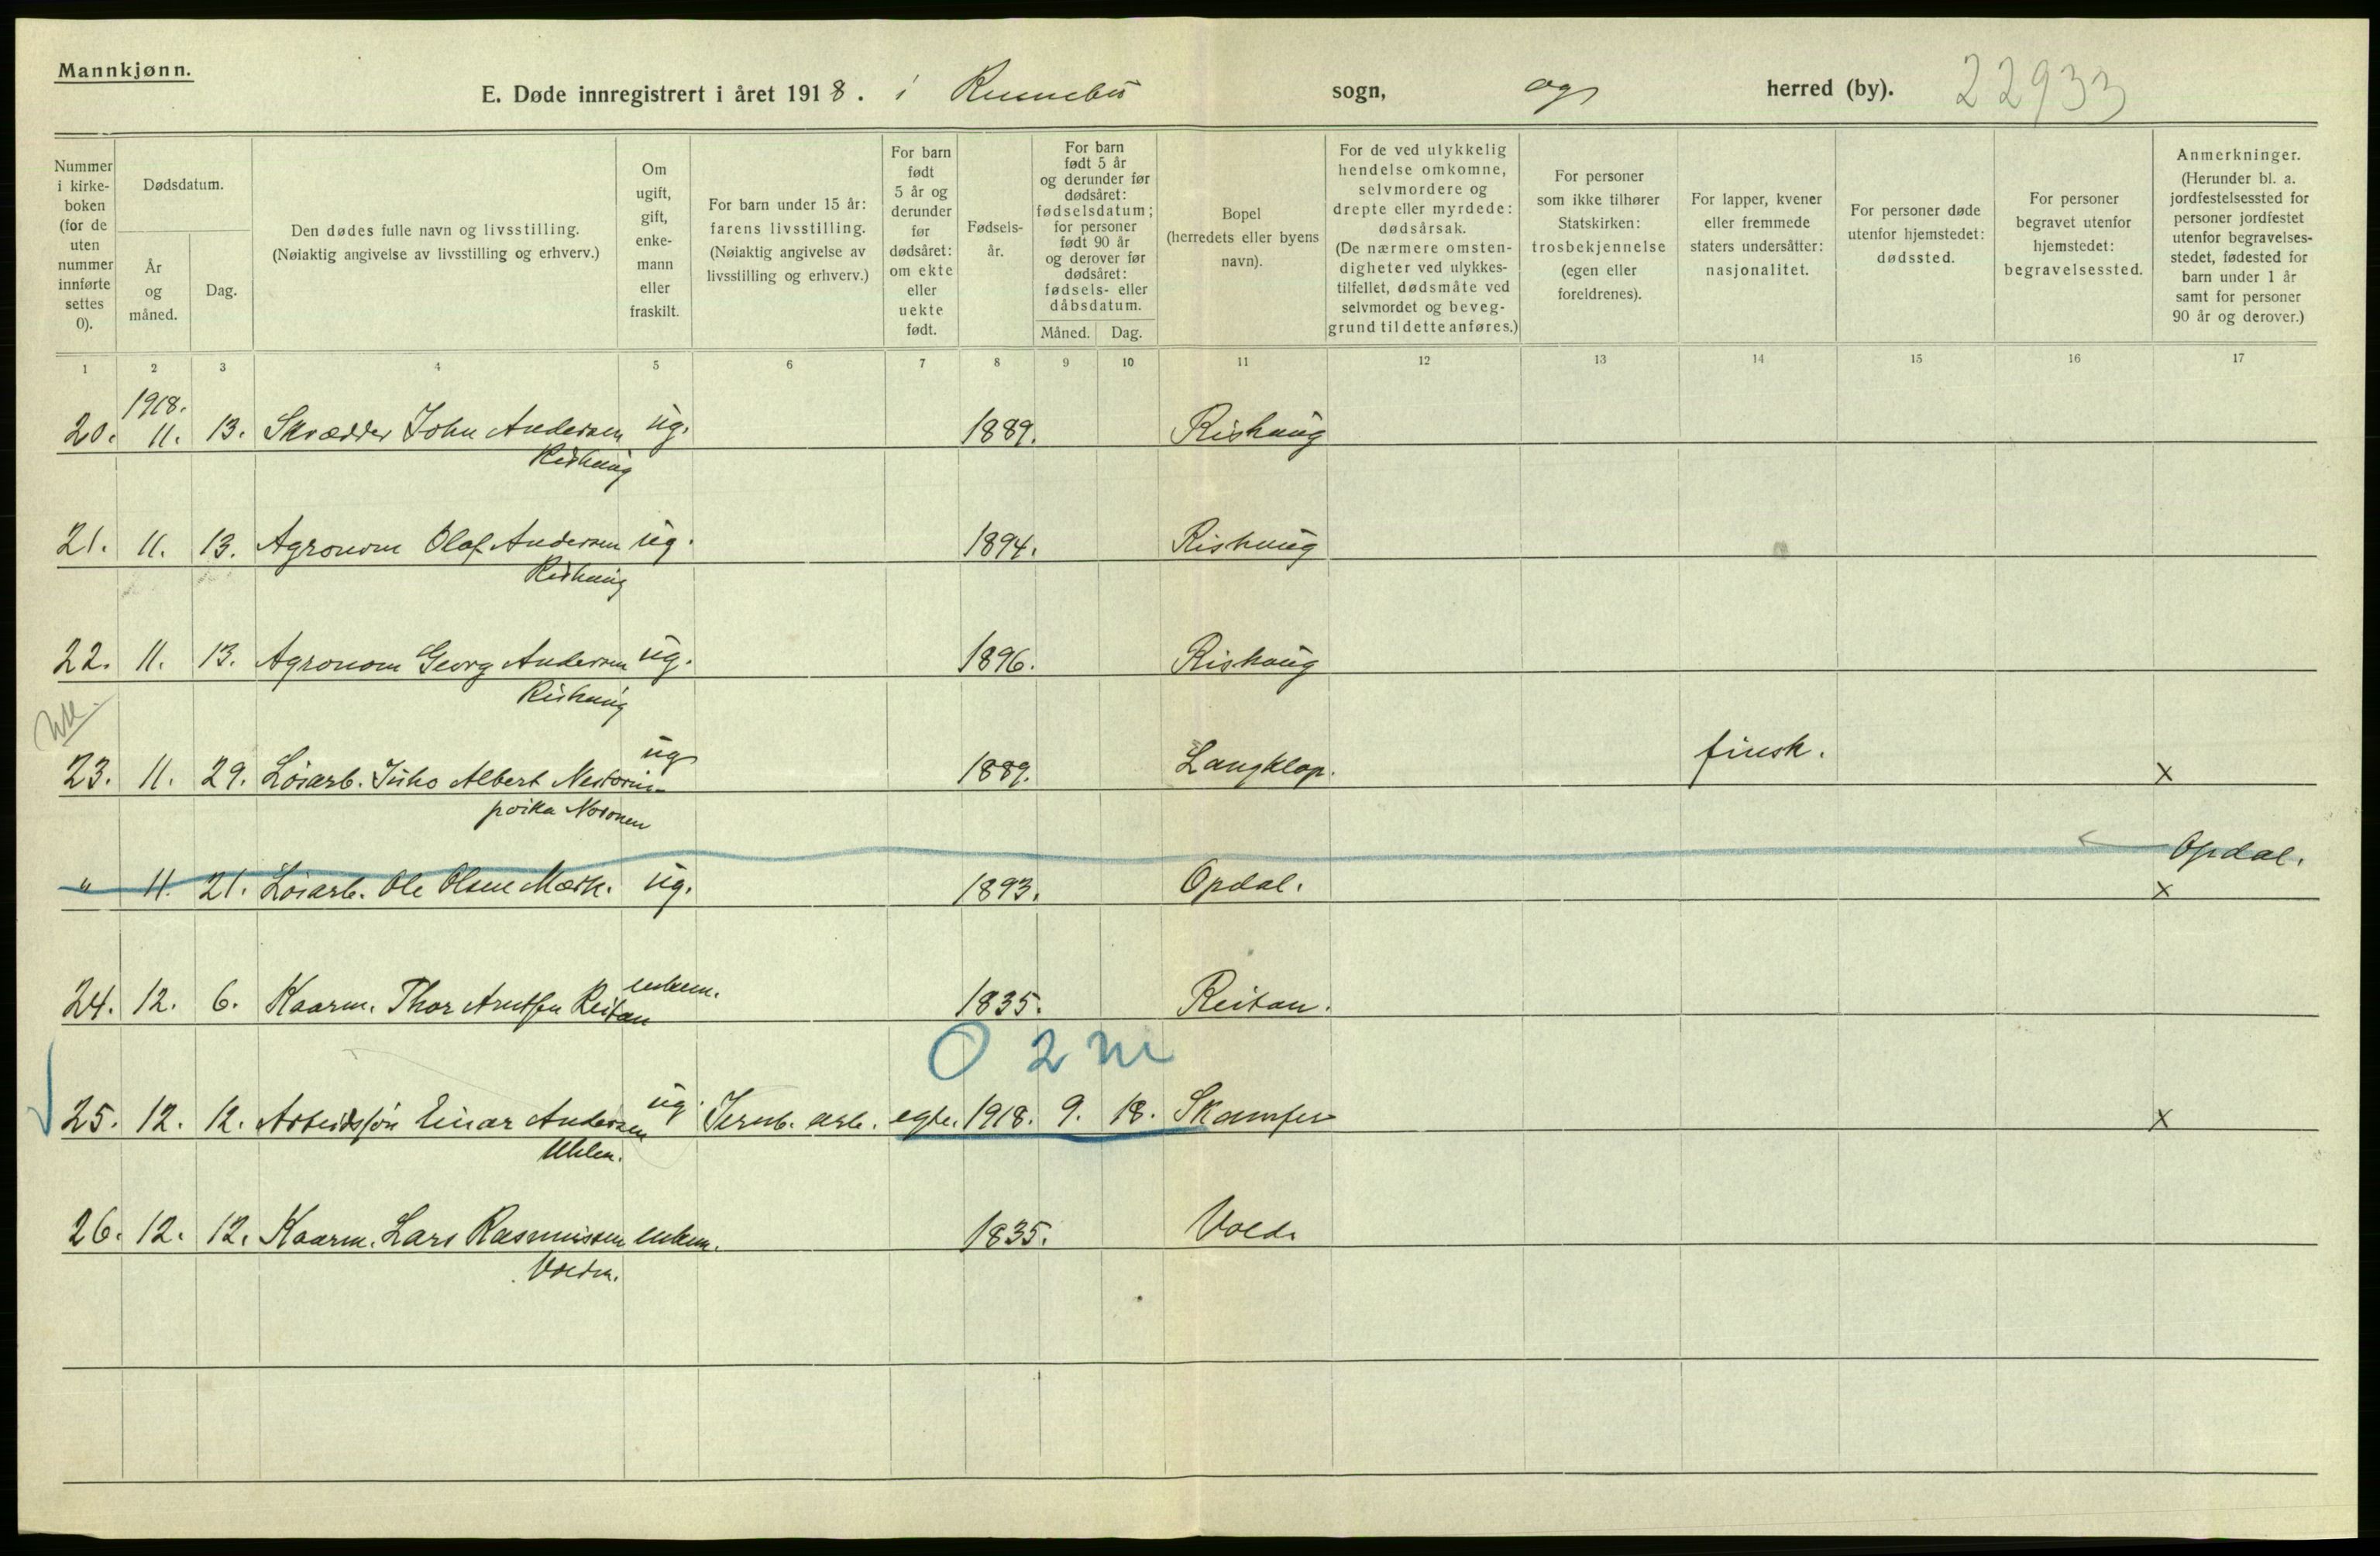 Mannkjønn.
E. Døde innregistrert i året 1918. i Rennebu sogn, og herred (by). 22933
Nummer i kirke-boken (for de uten nummer innførte settes 0).
Dødsdatum.
År og måned.
Dag.
Den dødes fulle navn og livsstilling.
(Nøiaktig angivelse av livsstilling og erhverv.)
Om ugift, gift, enke-mann eller fraskilt.
For barn under 15 år: farens livsstilling. (Nøiaktig angivelse av livsstilling og erhverv.)
For barn født 5 år og derunder før dødsåret: om ekte eller uekte født.
Fødsels-år.
For barn født 5 år og derunder før dødsåret: fødselsdatum; for personer født 90 år og derover før dødsåret: fødsels- eller dåbsdatum.
Måned. Dag.
Bopel (herredets eller byens navn).
For de ved ulykkelig hendelse omkomne, selvmordere og drepte eller myrdede: dødsårsak. (De nærmere omsten-digheter ved ulykkes-tilfellet, dødsmåte ved selvmordet og beveg-grund til dette anføres.)
For personer som ikke tilhører Statskirken: trosbekjennelse (egen eller foreldrenes).
For lapper, kvener eller fremmede staters undersåtter: nasjonalitet.
For personer døde utenfor hjemstedet: dødssted.
For personer begravet utenfor hjemstedet: begravelsessted.
Anmerkninger. (Herunder bl. a. jordfestelsessted for personer jordfestet utenfor begravelses-stedet, fødested for barn under 1 år samt for personer 90 år og derover.)
1 2 3 4 5 6 7 8 9 10 11 12 13 14 15 16 17
1918.
20. 11. 13. Skrædder John Andersen ug. 1889. Rishaug
Rishaug
21. 11. 13. Agronom Olaf Andersen ug. 1894. Rishaug
Rishaug
22. 11. 13. Agronom Georg Andersen ug. 1896. Rishaug
Rishaug
23. 11. 29. Løsarb. Juho Albert Nestorin- ug 1889. Langklop. finsk. x
poika
Opdal.
" 11. 21. Løsarb. Ole Olsen Mærk. ug. 1893. Opdal. x
24. 12. 6. Kaarm. Thor Arntsen Reitan enkem. 1835. Reitan.
0 2 m
25. 12. 12. Arbeidssøn Einar Andersen ug. Jernb. arb. egte. 1918. 9. 18. Skamfer x
Uhlen.
26. 12. 12. Kaarm. Lars Rasmussen enkem. 1835. Vold.
Volden.